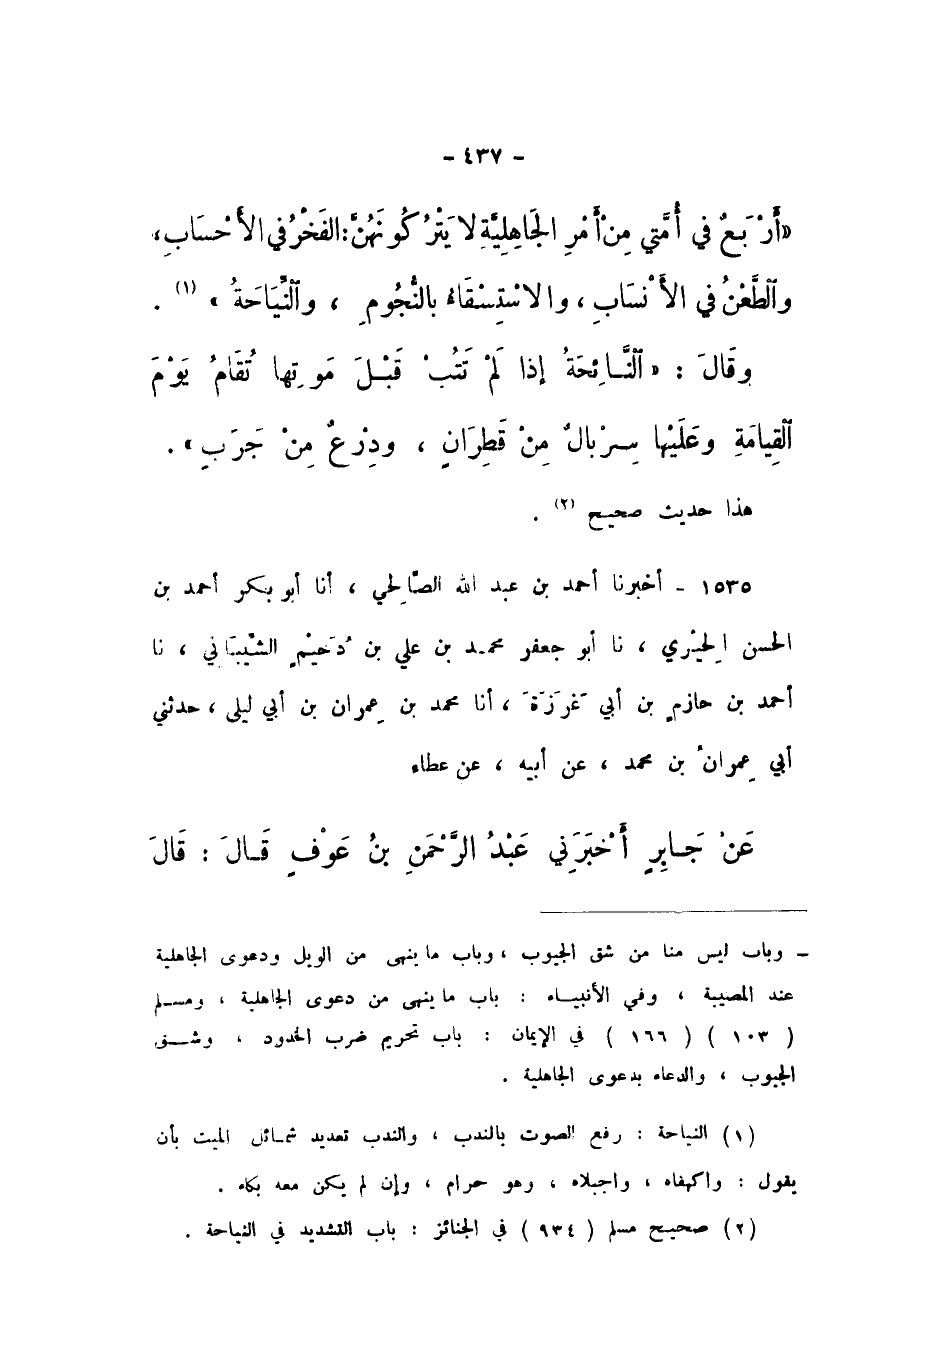 - ٤٣٧ -
«أَرْبَعٌ في أُمَّتي مِنْ أَمْرِ الجَاهِلِيَّةِ لا يَتْرُكُونَهُنَّ: الفَخْرُ في الأَحْسَابِ،
وٱلطَّعْنُ في الأَنْسَابِ، والاسْتِسْقَاءُ بالنُّجُومِ ، وٱلنِّيَاحَةُ » (١) .
وقَالَ : « ٱلنَّائِحَةُ إذا لَمْ تَتُبْ قَبْلَ مَوتِها تُقَامُ يَوْمَ
ٱلقِيامَةِ وعَلَيْها سِرْبالٌ مِنْ قَطِرَانٍ ، ودِرْعٌ مِنْ جَرَبٍ » .
هذا حديث صحيح (٢) .
١٥٣٥ - أخبرنا أحمد بن عبد الله الصَّالِحي ، أنا أبو بكر أحمد بن
الحسن الحِيْري ، نا أبو جعفر محمد بن علي بن دُحَيْمٍ الشَّيْبَاني ، نا
أحمد بن حازمِ بن أبي غَرَزَةَ ، أنا محمد بن عِمران بن أبي ليلى ، حدثني
أبي عِمرانُ بن محمد ، عن أبيه ، عن عطاء
عَنْ جَابِرٍ أَخْبَرَنِي عَبْدُ الرَّحْمَنِ بنُ عَوْفٍ قَالَ : قَالَ
ـ وباب ليس منا من شق الجيوب ، وباب ما ينهى من الويل ودعوى الجاهلية
عند المصيبة ، وفي الأنبياء : باب ما ينهى من دعوى الجاهلية ، ومسلم
( ١٠٣ ) ( ١٦٦ ) في الإيمان : باب تحريم ضرب الخدود ، وشق
الجيوب ، والدعاء بدعوى الجاهلية .
(١) النياحة : رفع الصوت بالندب ، والندب تعديد شمائل الميت بأن
يقول : واكهفاه ، واجبلاه ، وهو حرام ، وإن لم يكن معه بكاء .
(٢) صحيح مسلم ( ٩٣٤ ) في الجنائز : باب التشديد في النياحة .